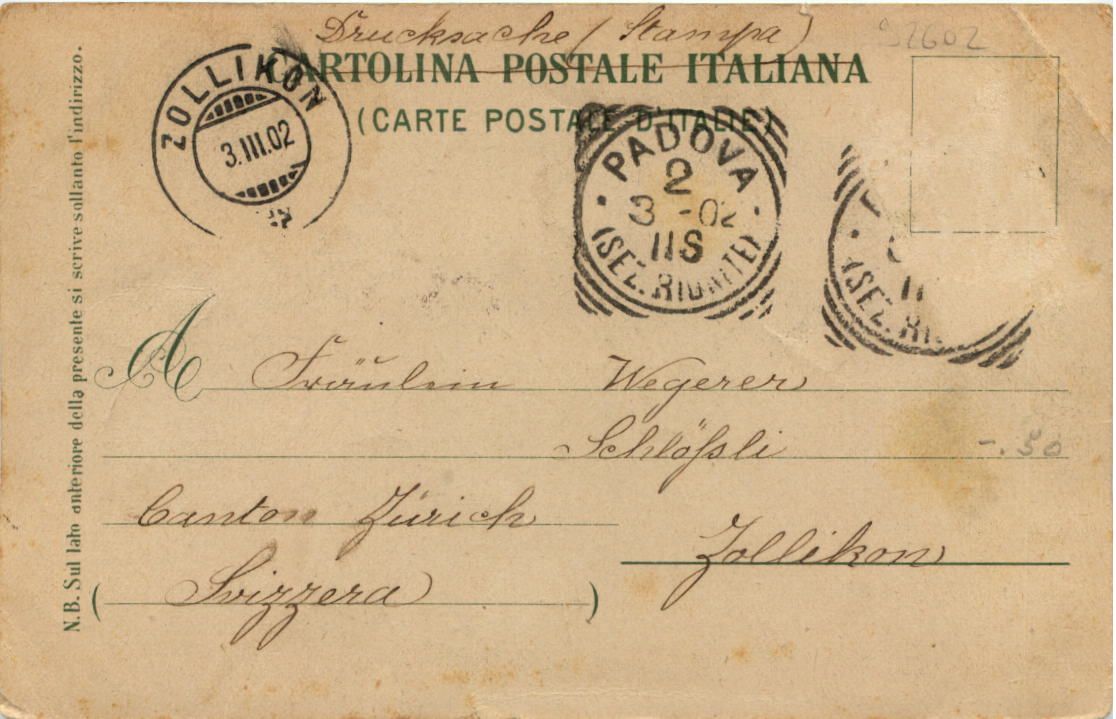 Drucksache (Stampa)
92602
CARTOLINA POSTALE ITALIANA
(CARTE POSTALE D'ITALIE)
ZOLLIKON
3.III.02
PADOVA
2
3 -02
11S
(SEZ. RIUNITE)
11
(SEZ. RI
N.B. Sul lato anteriore della presente si scrive soltanto l'indirizzo.
A Fräulein Wegerer
Schlößli
-.50
Canton Zürich
Zollikon
(Svizzera)